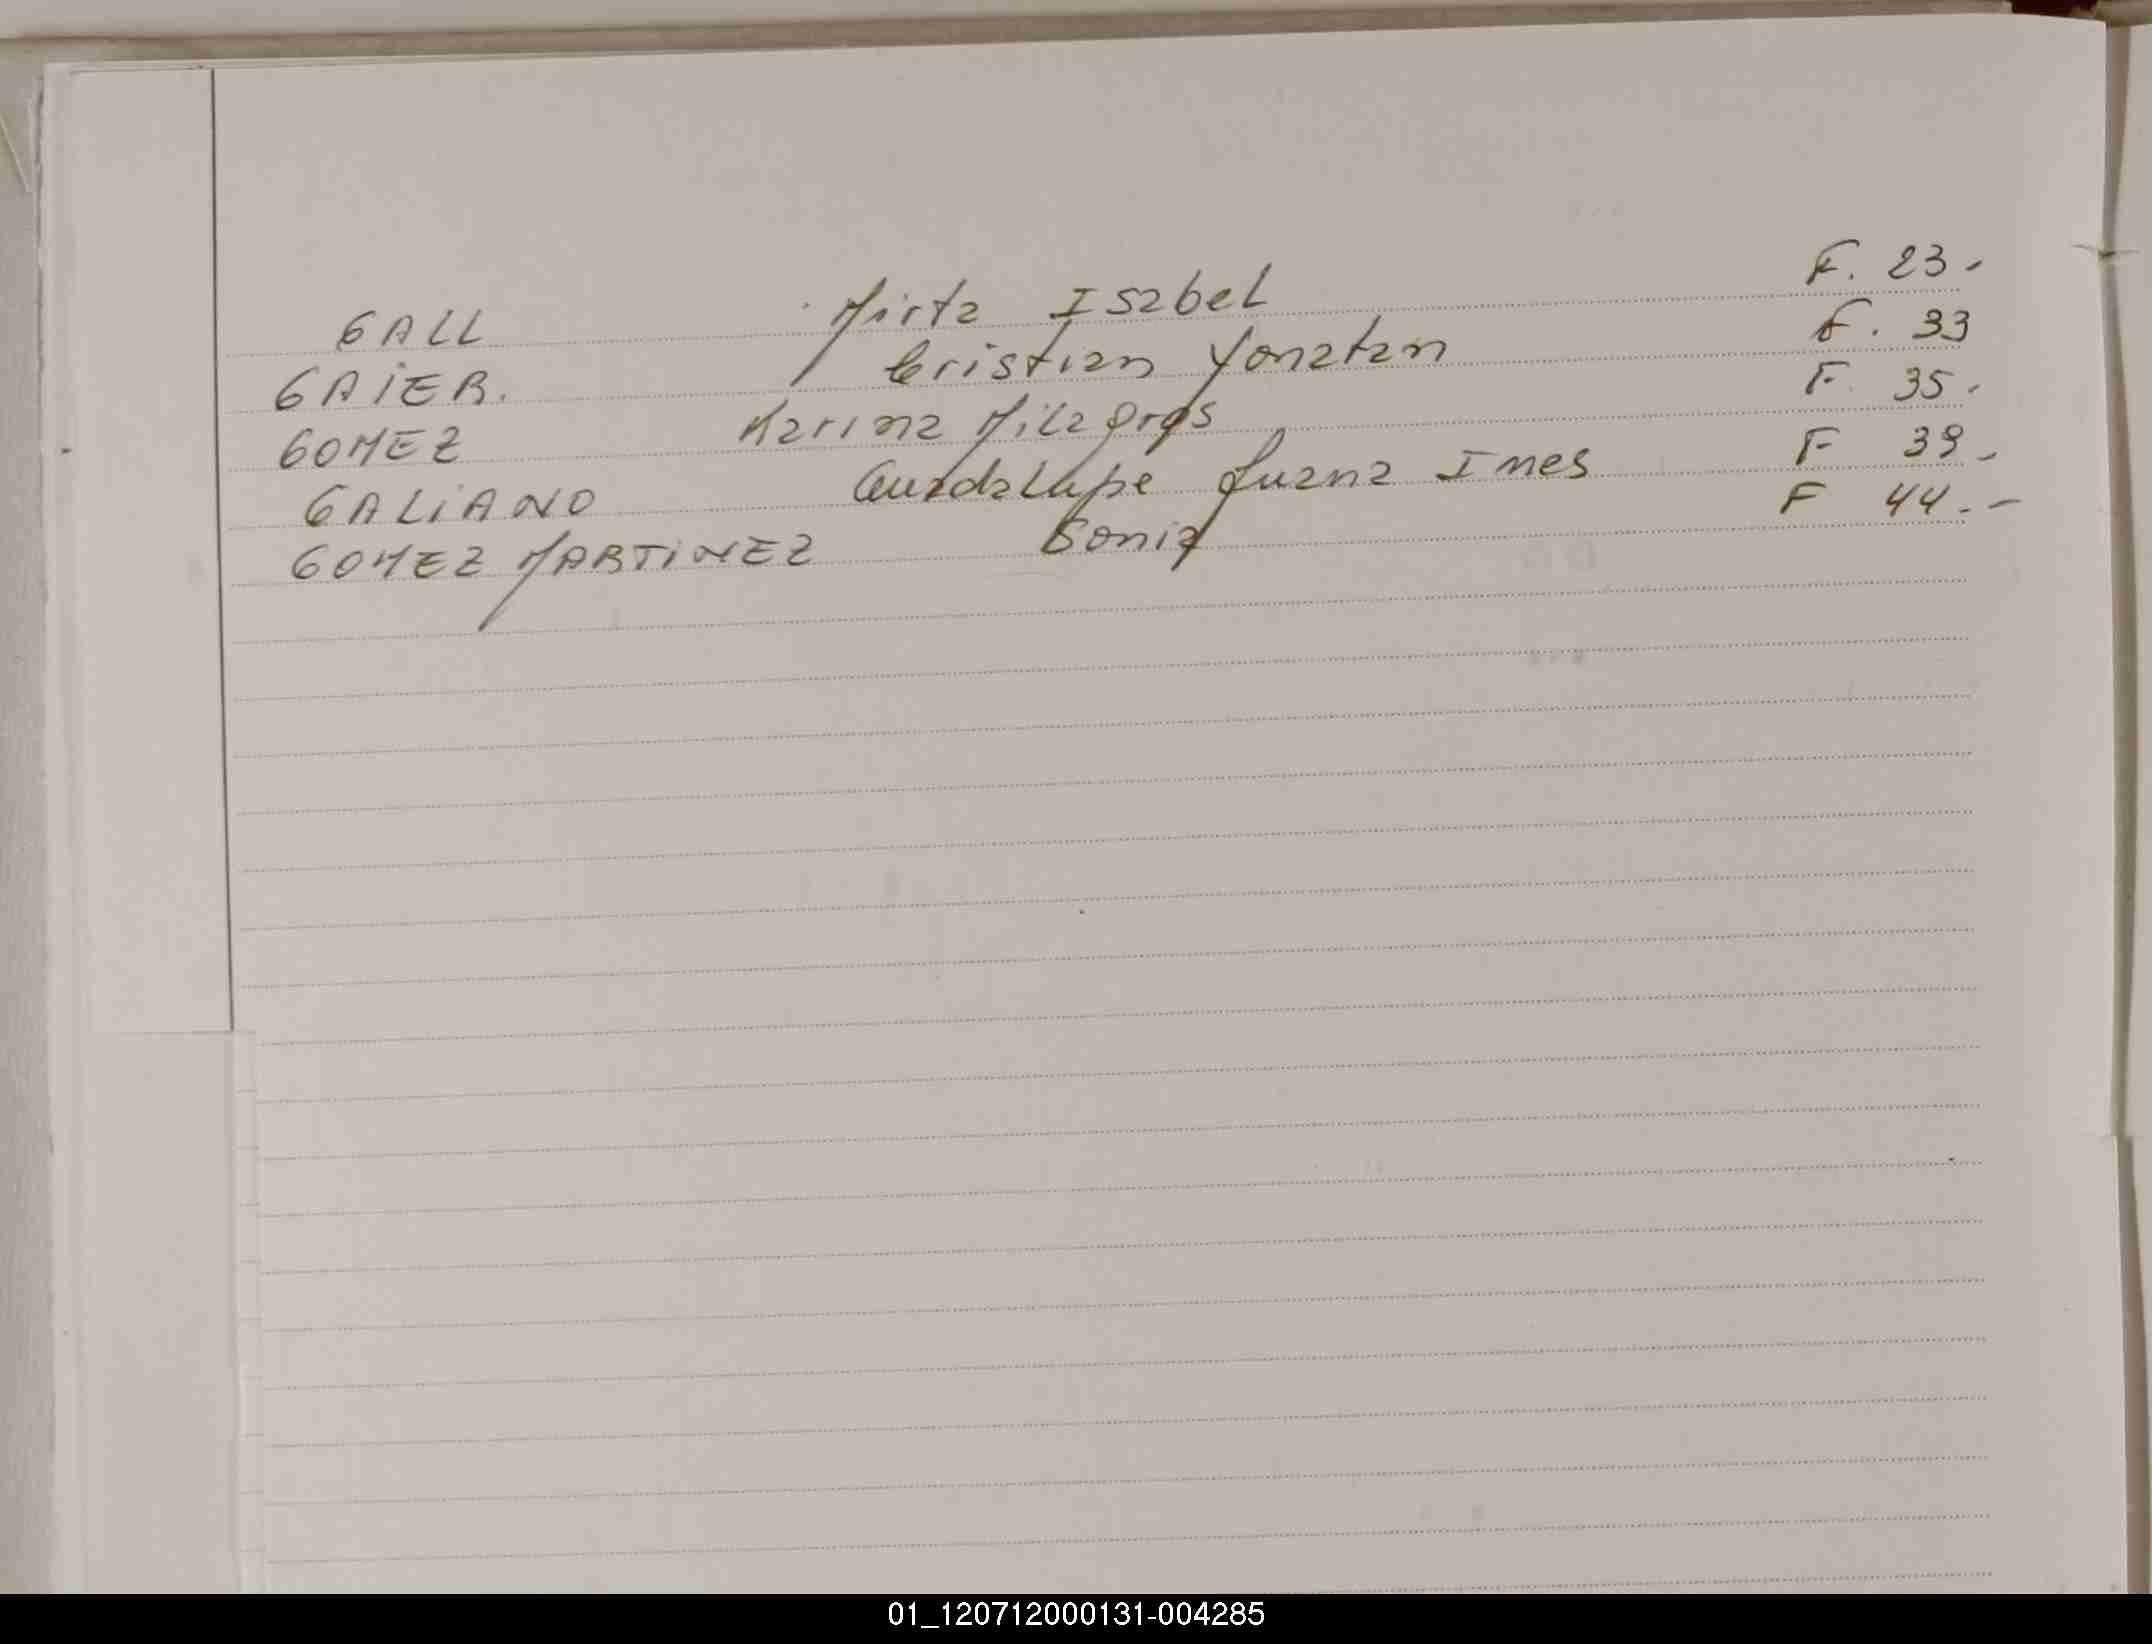 GALL Mirta Isabel F. 23.
GAiER. Cristian Yonatan F. 33
GOMEZ Karina Milagros F. 35.
GALiANO Guadalupe Juana Ines F 39.
GOMEZ MARTiNEZ Sonia F 44.-
01_120712000131-004285